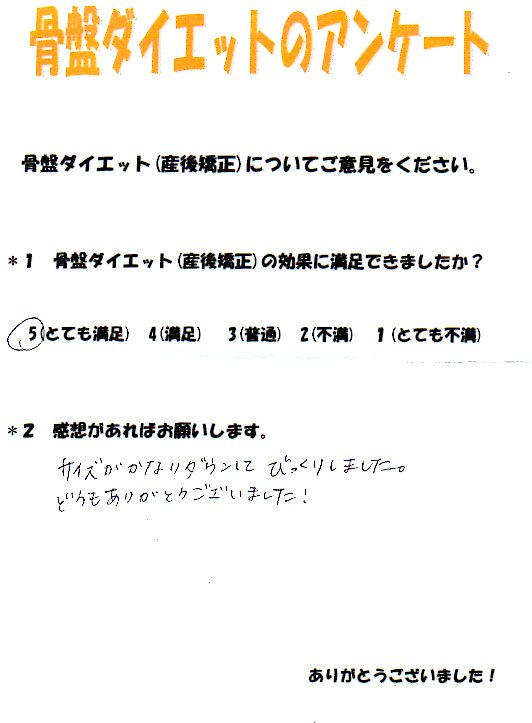 骨盤ダイエットのアンケート
骨盤ダイエット(産後矯正)についてご意見をください。
*1 骨盤ダイエット(産後矯正)の効果に満足できましたか？
5(とても満足) 4(満足) 3(普通) 2(不満) 1(とても不満)
*2 感想があればお願いします。
サイズがかなりダウンして びっくりしました。
どうもありがとうございました！
ありがとうございました！